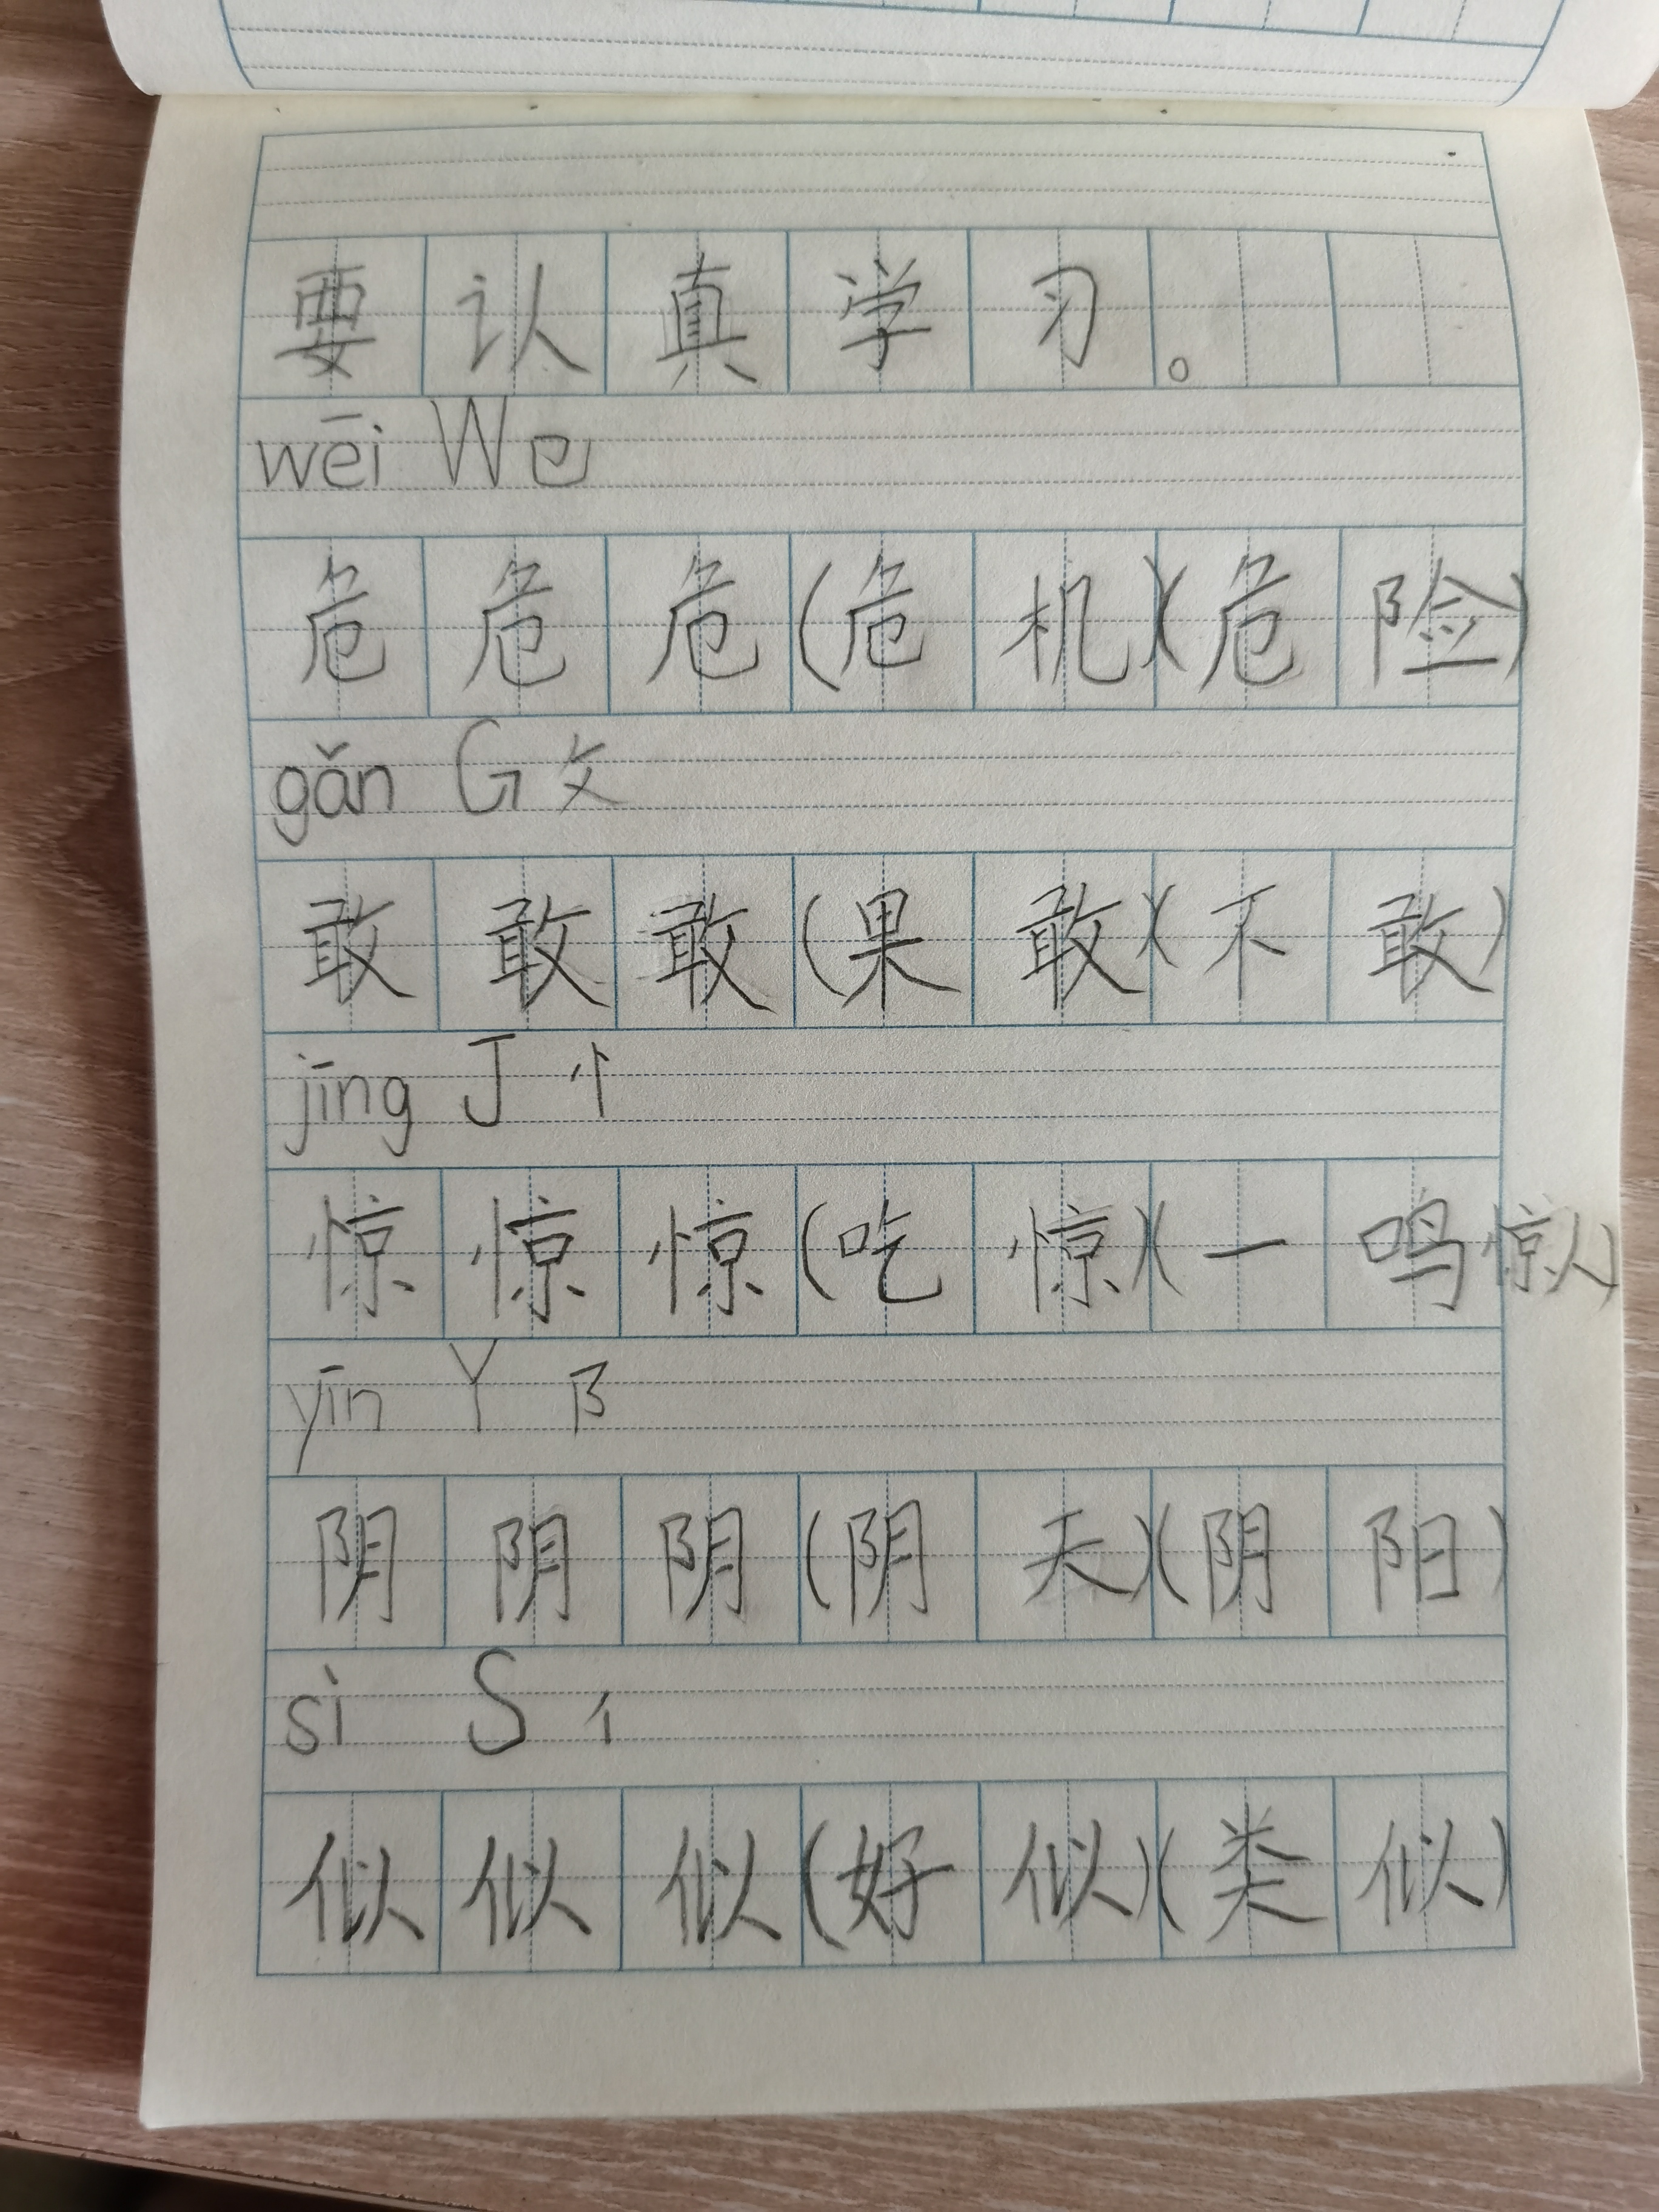 要认真学习。
wēi W 㔾
危危危(危机)(危险)
gǎn G 攵
敢敢敢(果敢)(不敢)
jīng J 忄
惊惊惊(吃惊)(一鸣惊人)
yīn Y 阝
阴阴阴(阴天)(阴阳)
sì S 亻
似似似(好似)(类似)